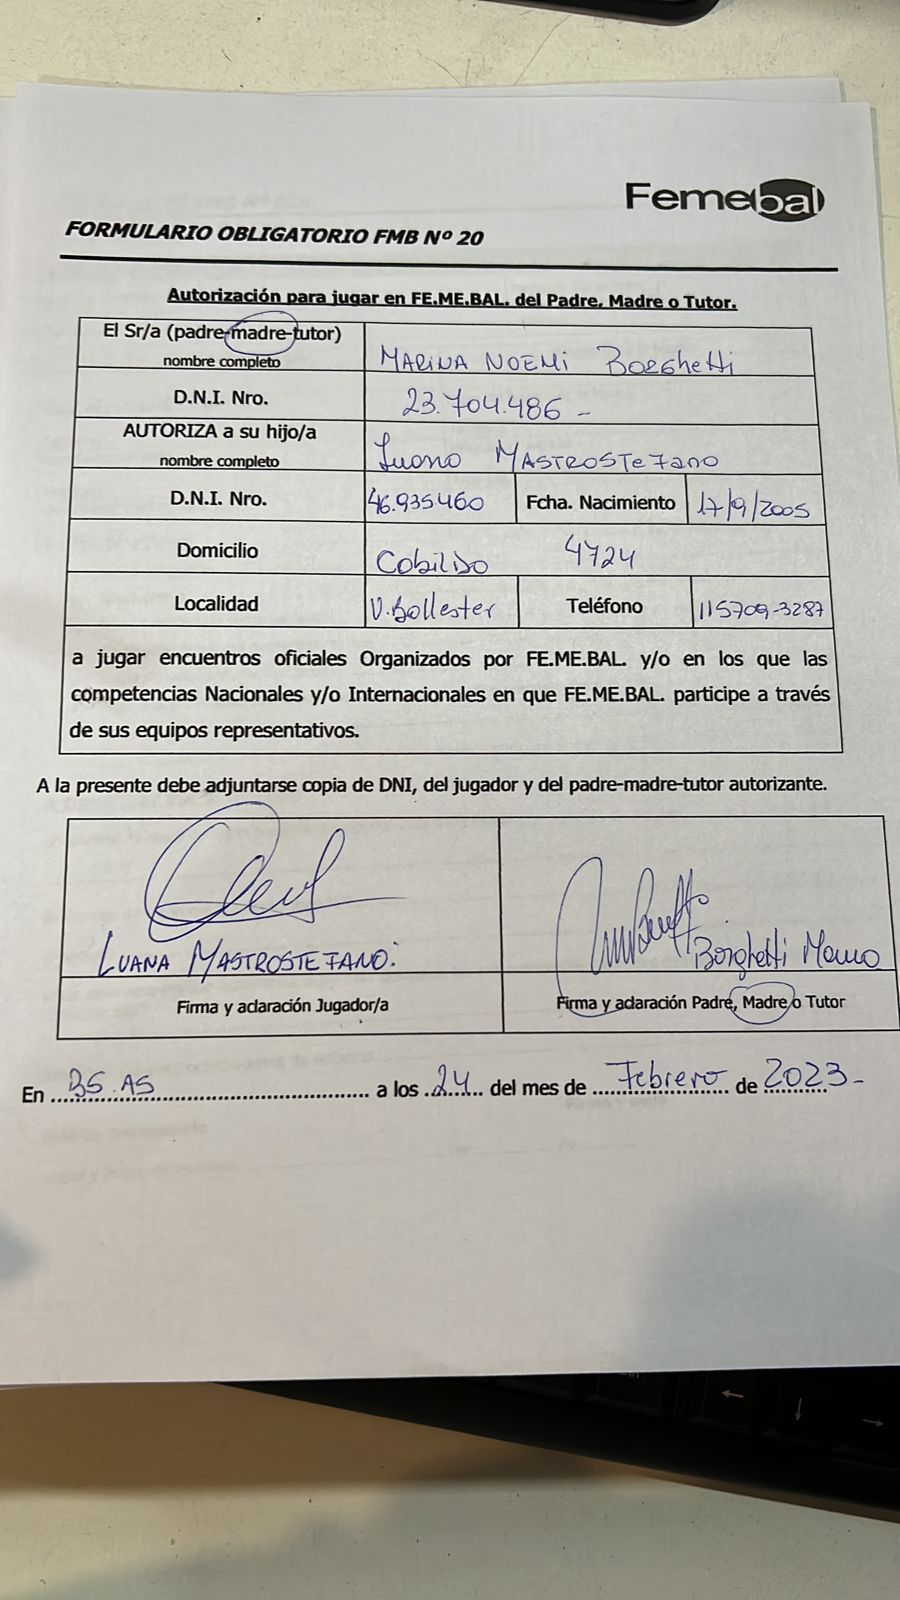 Femebal
FORMULARIO OBLIGATORIO FMB Nº 20
Autorización para jugar en FE.ME.BAL. del Padre, Madre o Tutor.
El Sr/a (padre-madre-tutor)
nombre completo
MARINA NOEMI Borghetti
D.N.I. Nro.
23.704.486 -
AUTORIZA a su hijo/a
nombre completo
Luana MASTROSTefano
D.N.I. Nro.
46.935460
Fcha. Nacimiento
17/9/2005
Domicilio
Cabildo 4724
Localidad
V.Ballester
Teléfono
115709-3287
a jugar encuentros oficiales Organizados por FE.ME.BAL. y/o en los que las
competencias Nacionales y/o Internacionales en que FE.ME.BAL. participe a través
de sus equipos representativos.
A la presente debe adjuntarse copia de DNI, del jugador y del padre-madre-tutor autorizante.
LUANA MASTROSTEFANO.
Borghetti
Firma y aclaración Jugador/a
Firma y aclaración Padre, Madre o Tutor
En BS.AS a los 24 del mes de Febrero de 2023-